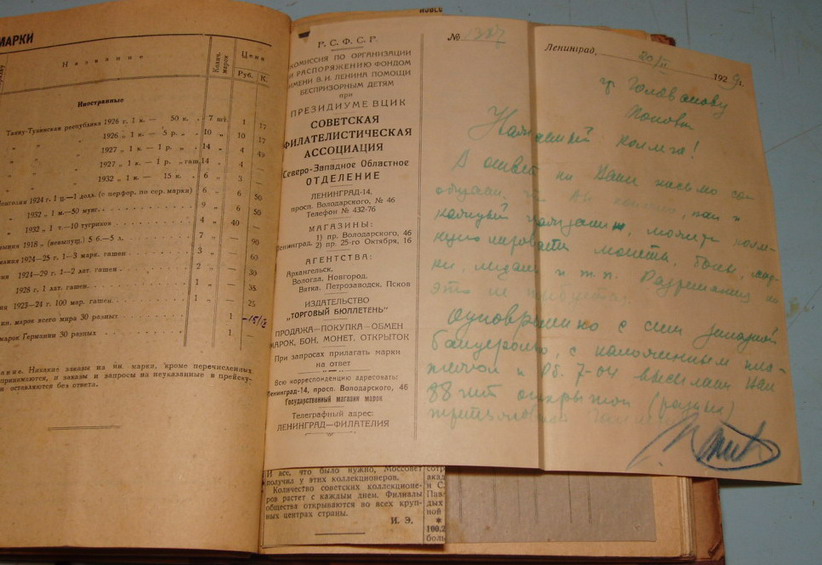 МАРКИ
Название
Колич. марок
Цена
Руб.
К.
Иностранные
Танну-Тувинская республика 1926 г. 1 к. — 50 к. 7 шт. 1
" " 1926 „ 1 к. — 5 р. 10 " 10
" " 1927 „ 1 к. — 1 р. 14 " 4
" " 1927 „ 1 к. — 1 р. „ гаш. 14 " 4 —
" " 1932 „ 1 к. — 15 к. 6 " 3 —
1924 г. 1 ц.—1 долл. (с перфор. по сер. марки) 6 " 6 50
" 1932 „ 1 м.—50 мунг. 9 " 6 50
" 1932 „ 1 т.—10 тугриков 4 " 40 —
1918 „ 5 б.—5 л. 7 " — 90
1924—25 г. 1—3 марк. гашен. 3 " — 60
1924—29 г. 1—2 лат. гашен. 2 " —
1928 г. 1 лат. гашен. 1 " —
1923—24 г. 100 мар. гашен. 1 " — 25
марок всего мира 30 разных 1
марок Германии 30 разных 1. —
Никакие заказы на эти марки, кроме перечисленных
принимаются, и заказы и запросы на неуказанные в прейску-
оставляются без ответа.
Р. С. Ф. С. Р.
КОМИССИЯ ПО ОРГАНИЗАЦИИ
И РАСПОРЯЖЕНИЮ ФОНДОМ
ИМЕНИ В. И. ЛЕНИНА ПОМОЩИ
БЕСПРИЗОРНЫМ ДЕТЯМ
при
ПРЕЗИДИУМЕ ВЦИК
СОВЕТСКАЯ
ФИЛАТЕЛИСТИЧЕСКАЯ
АССОЦИАЦИЯ
Северо-Западное Областное
ОТДЕЛЕНИЕ
ЛЕНИНГРАД-14,
просп. Володарского, № 46
Телефон № 432-76
МАГАЗИНЫ:
Ленинград. 1) пр. Володарского, 46
2) пр. 25-го Октября, 16
АГЕНТСТВА:
Архангельск,
Вологда, Новгород,
Вятка, Петрозаводск, Псков
ИЗДАТЕЛЬСТВО
„ТОРГОВЫЙ БЮЛЛЕТЕНЬ"
ПРОДАЖА—ПОКУПКА—ОБМЕН
МАРОК, БОН, МОНЕТ, ОТКРЫТОК
При запросах прилагать марки
на ответ
Всю корреспонденцию адресовать:
Ленинград-14, просп. Володарского, 46
Государственный магазин марок
Телеграфный адрес:
ЛЕНИНГРАД—ФИЛАТЕЛИЯ
№ 1327
Ленинград, 20/II 1929 г.
гр. Голованову
Уважаемый коллега!
В ответ на Ваше письмо со-
общаем, что Вы
каждый гражданин, можете колле-
кционировать монеты, боны, мар-
ки, медали и т.п. Разрешения на
это не требуется.
Одновременно с сим заказной
бандеролью, с наложенным пла-
тежом в Рб. 7-04 высылаем Вам
88 шт открыток (разных)
И все, что было нужно, Моссовет
получил у этих коллекционеров.
Количество советских коллекционе-
ров растет с каждым днем. Филиалы
общества открываются во всех круп-
ных центрах страны.
И. Э.